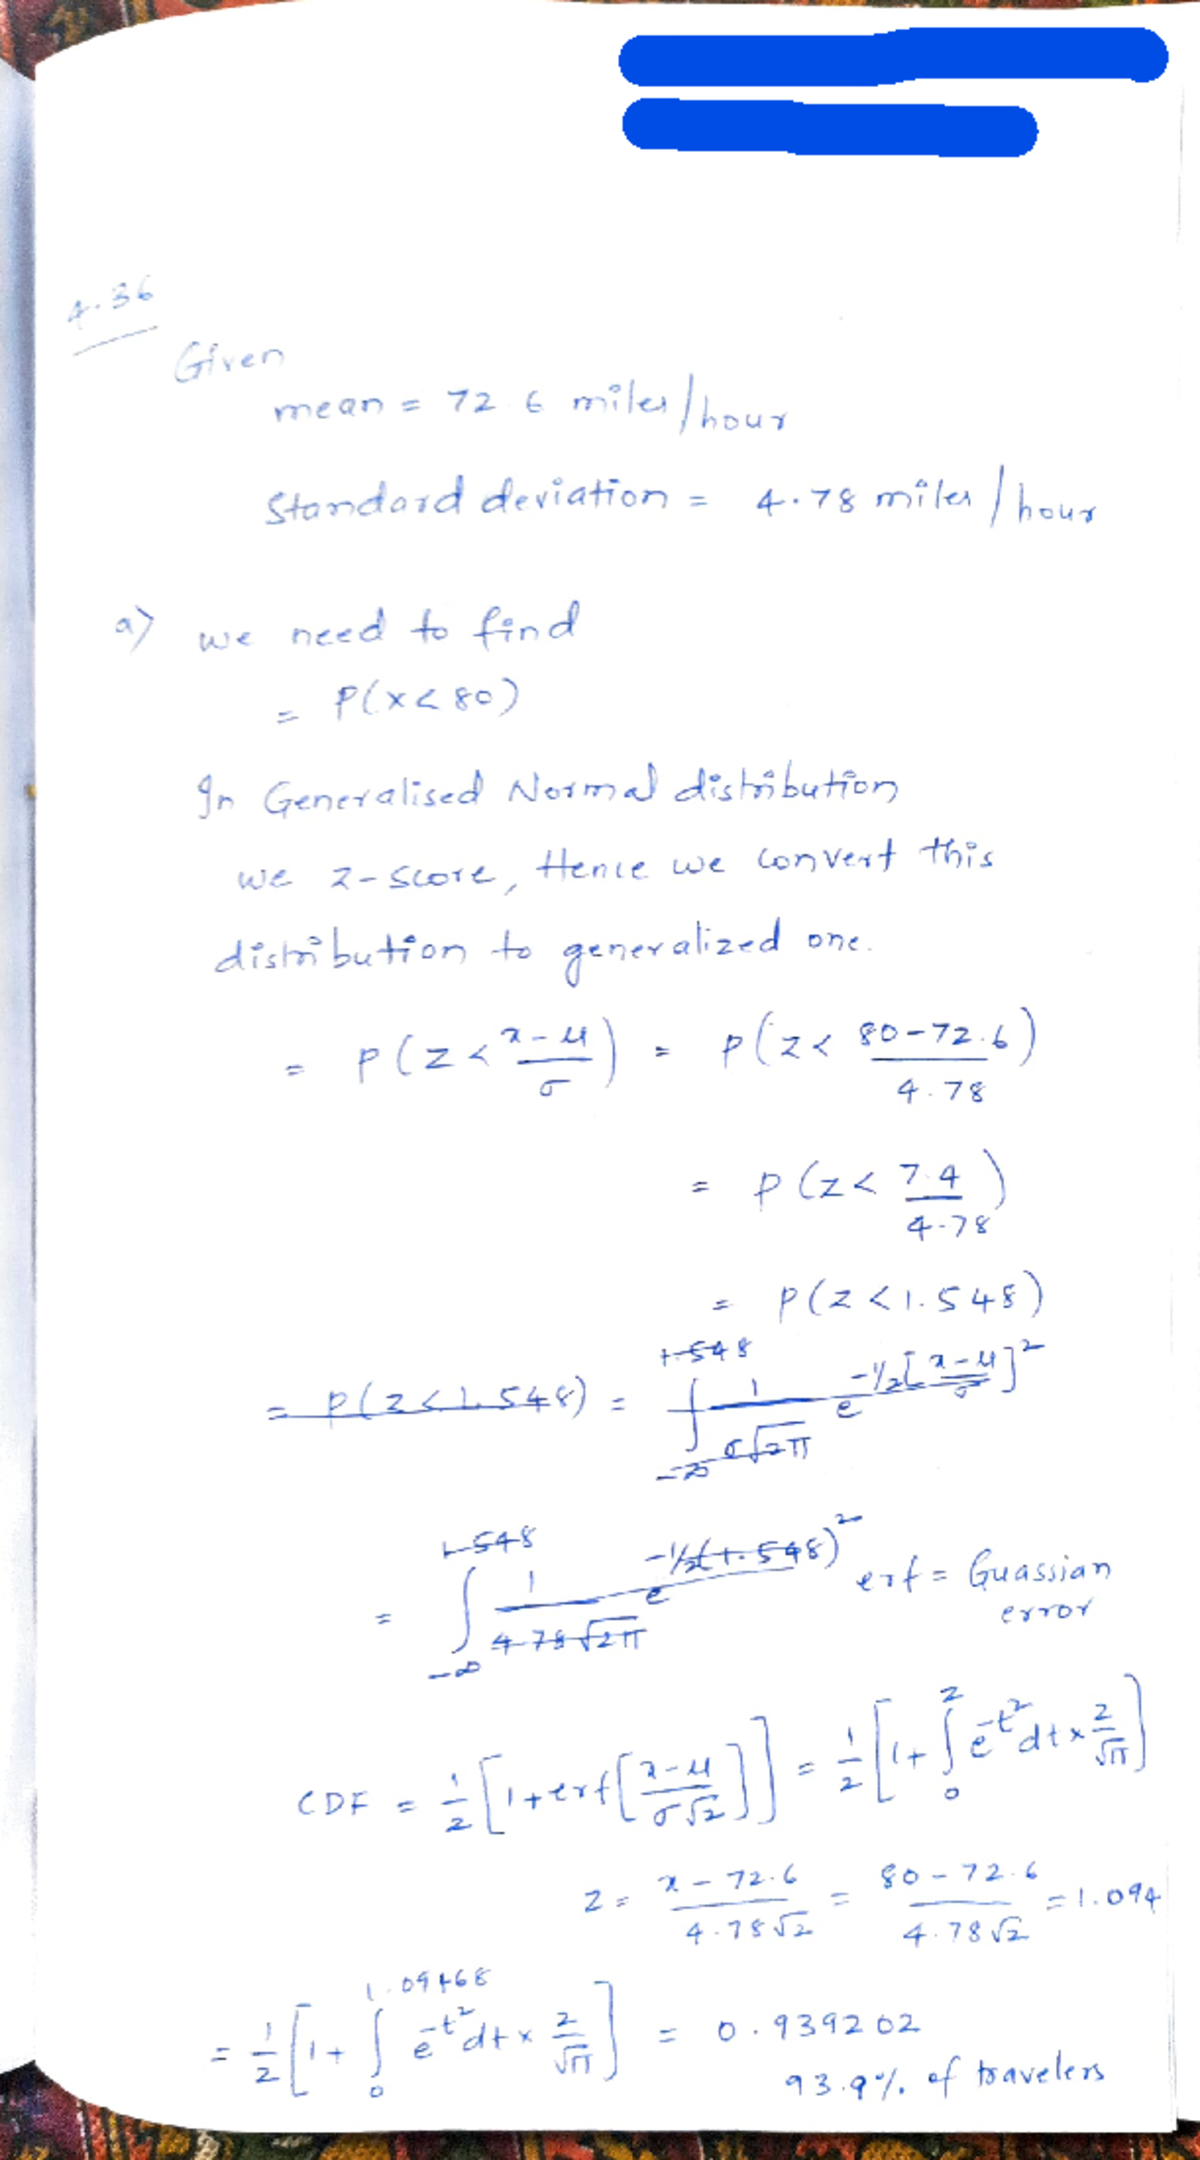 4.36
Given
mean = 72.6 miles/hour
Standard deviation = 4.78 miles/hour
a) we need to find
= P(x<80)
In Generalised Normal distribution
we z-score, Hence we convert this
distribution to generalized one.
= P(Z < x-μ/σ) = P(z < 80-72.6/4.78)
= P(z < 7.4/4.78)
= P(z < 1.548)
= P(z < 1.548) = ∫_{-∞}^{1.548} 1/σ√2π e^{-1/2[x-μ/σ]²}
= ∫_{-∞}^{1.548} 1/4.78√2π e^{-1/2(1.548)²} erf = Guassian
error
CDF = 1/2[1+erf[x-μ/σ√2]] = 1/2[1+∫_0^z e^{-t²}dt × 2/√π]
z = x-72.6/4.78√2 = 80-72.6/4.78√2 = 1.094
= 1/2[1+∫_0^{1.09468} e^{-t²}dt × 2/√π] = 0.939202
93.9% of travelers